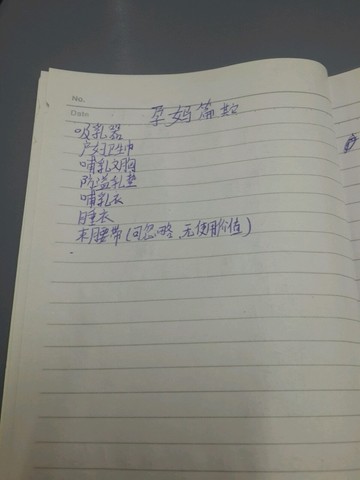 No.
Date
孕妈篇
吸乳器
产妇卫生巾
哺乳文胸
防溢乳垫
哺乳衣
睡衣
束腰带(可忽略,无使用价值)